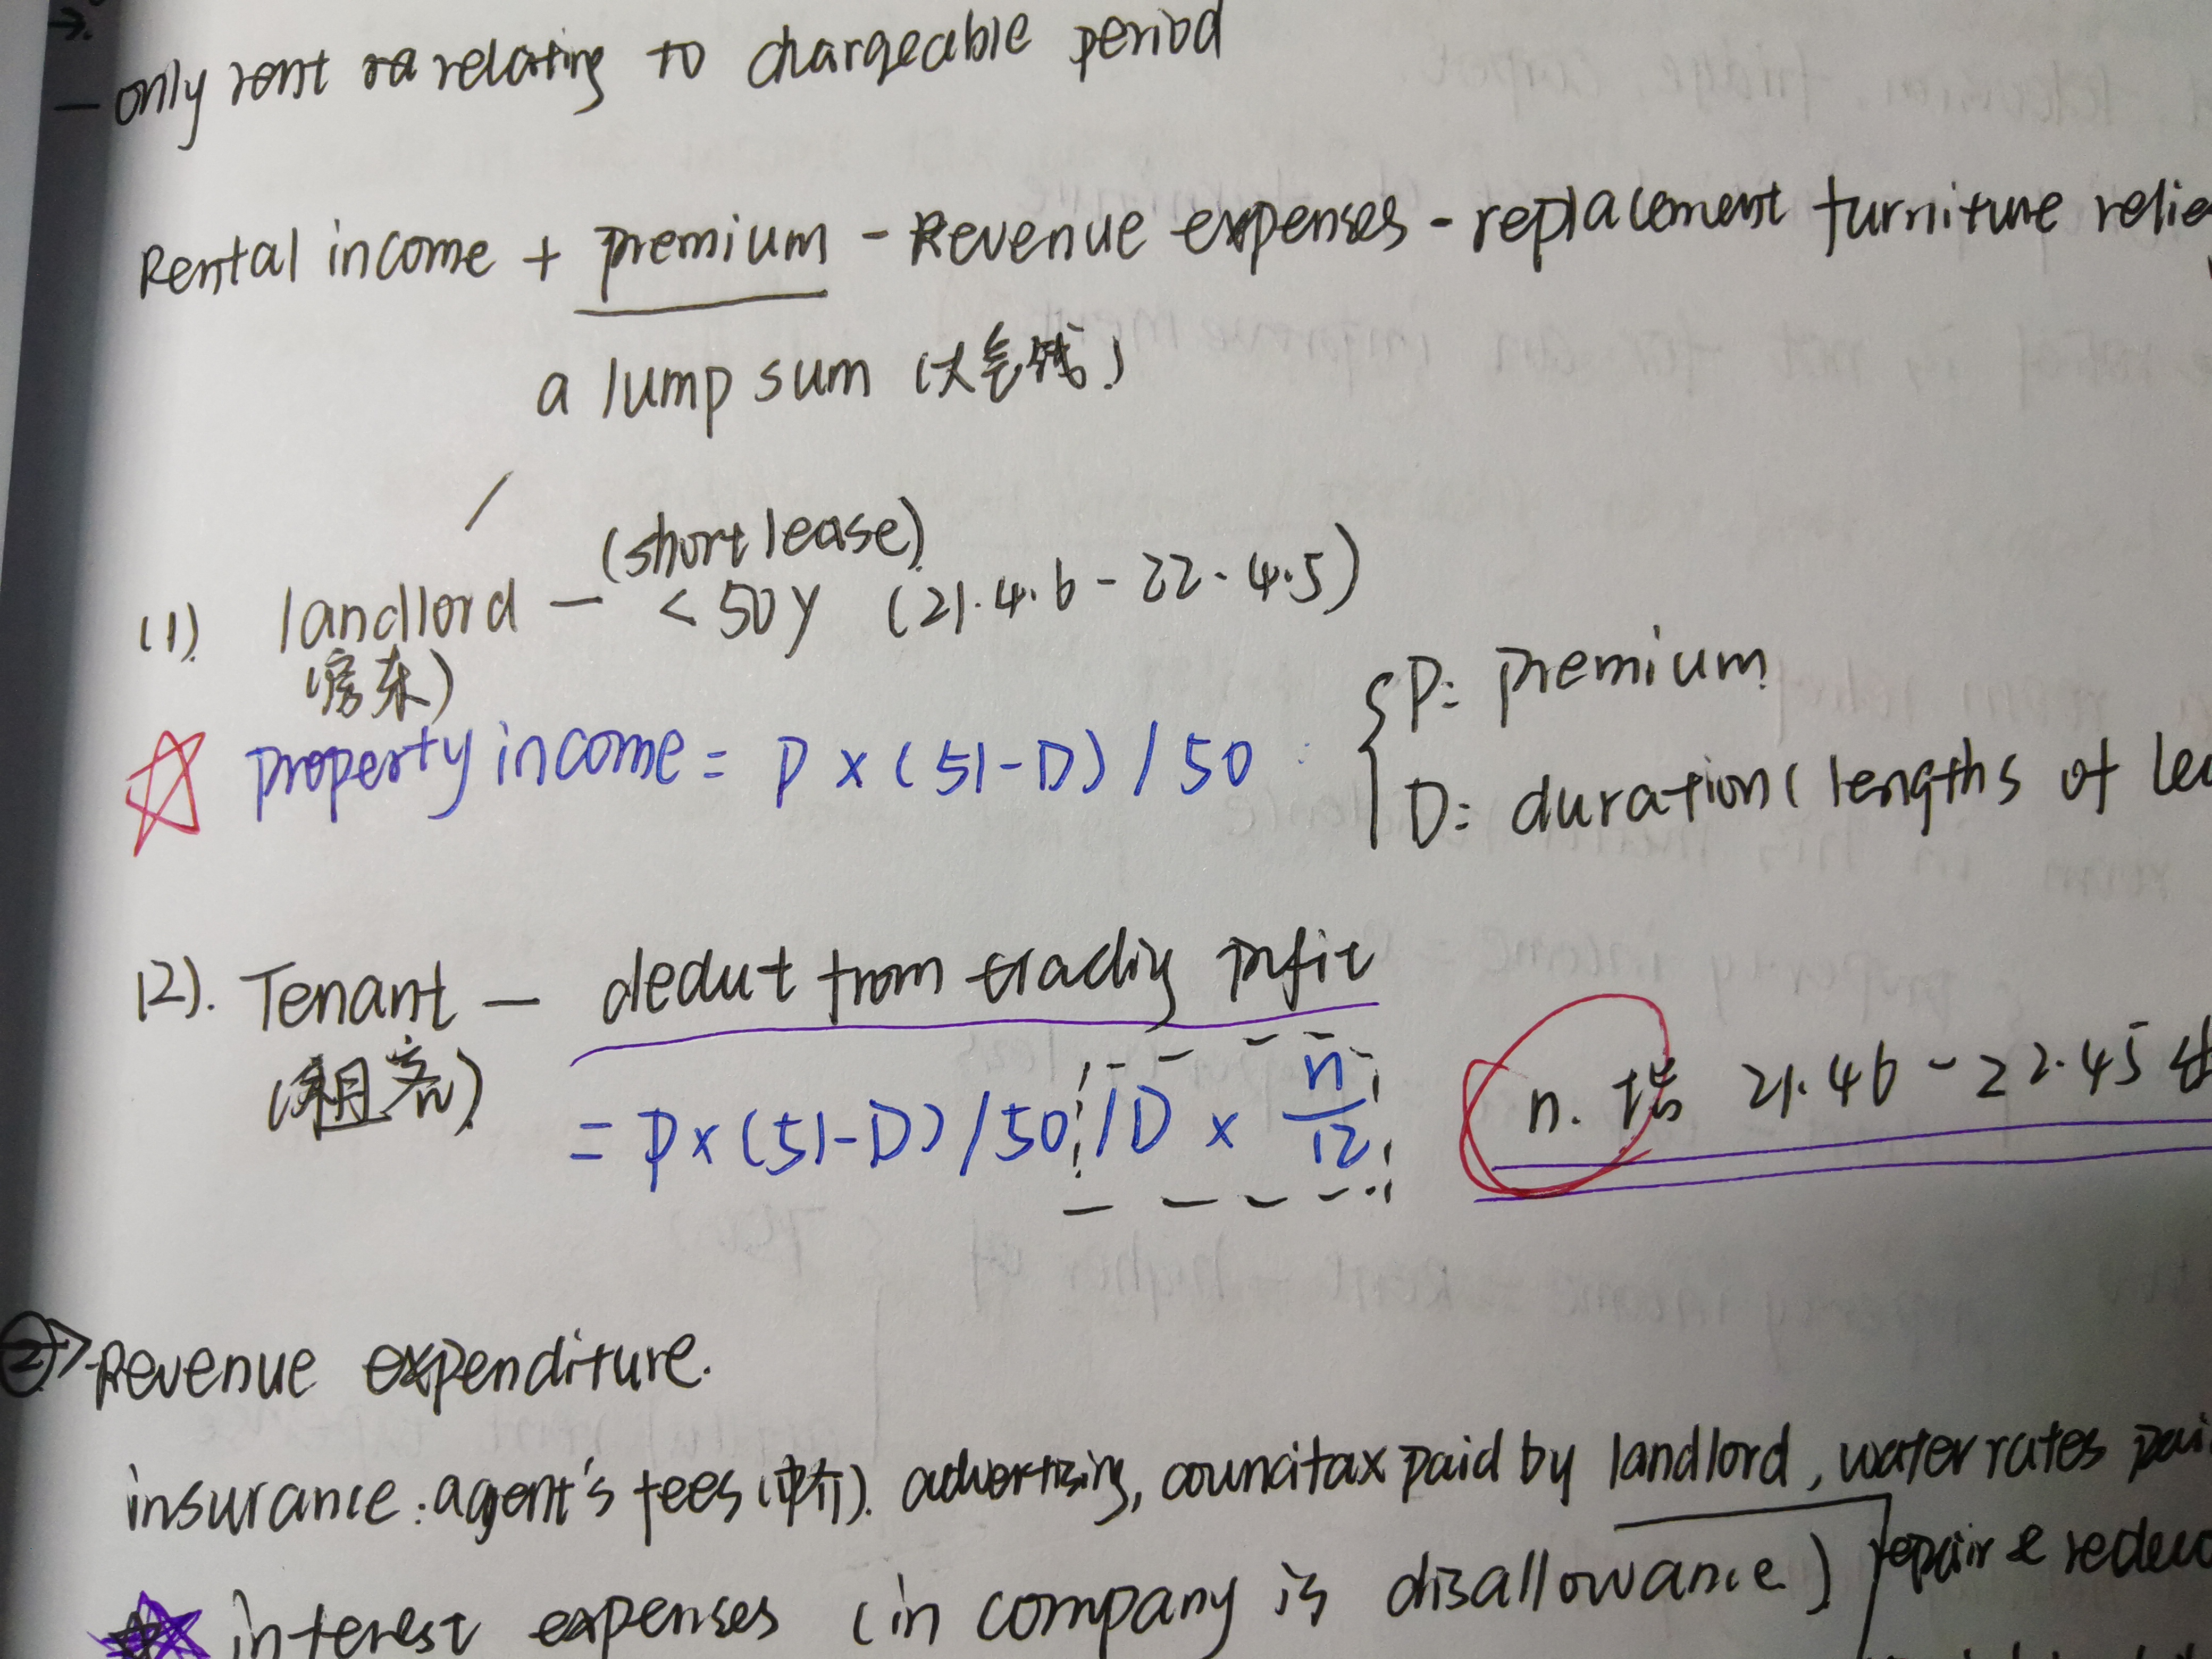 - only rent relating to chargeable period
Rental income + premium - Revenue expenses - replacement furniture relie
a lump sum (大笔钱)
(short lease)
(1). landlord — < 50y (21.4.6 - 22.4.5)
(房东)
{ P: premium
property income = P × (51-D) / 50
D: duration ( lengths of lea
(2). Tenant — dedut from trading profit
(租客)
= P × (51-D) / 50 / D × n/12
n. 指 21.4.6 - 22.4.5
② Revenue expenditure.
insurance. agent's fees (中介). advertising, council tax paid by landlord, water rates pai
repair & redeco
interest expenses (in company is disallowance)